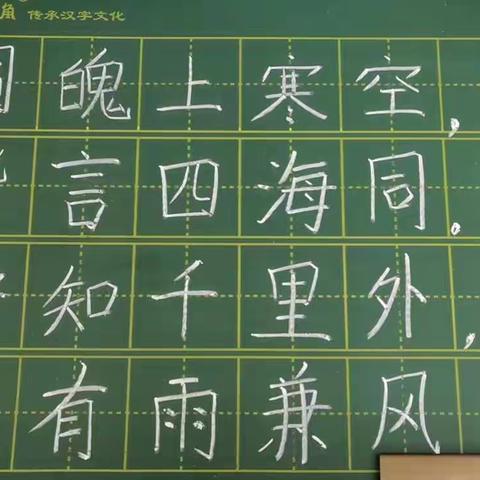 角 传承汉字文化
魄上寒空,
言四海同。
知千里外,
有雨兼风